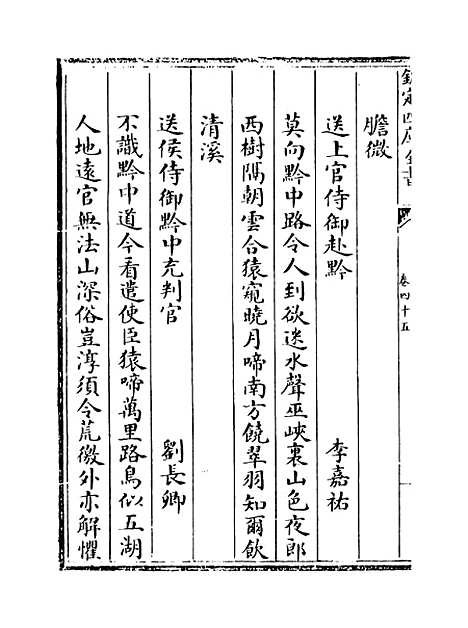 欽定四庫全書
卷四十五
膽微
送上官侍御赴黔　李嘉祐
莫向黔中路令人到欲迷水聲巫峽裏山色夜郎
西樹隔朝雲合猿窺曉月啼南方饒翠羽知爾飲
清溪
送侯侍御黔中充判官　劉長卿
不識黔中道今看遣使臣猿啼萬里路鳥似五湖
人地遠官無法山深俗豈淳須令荒徼外亦解懼